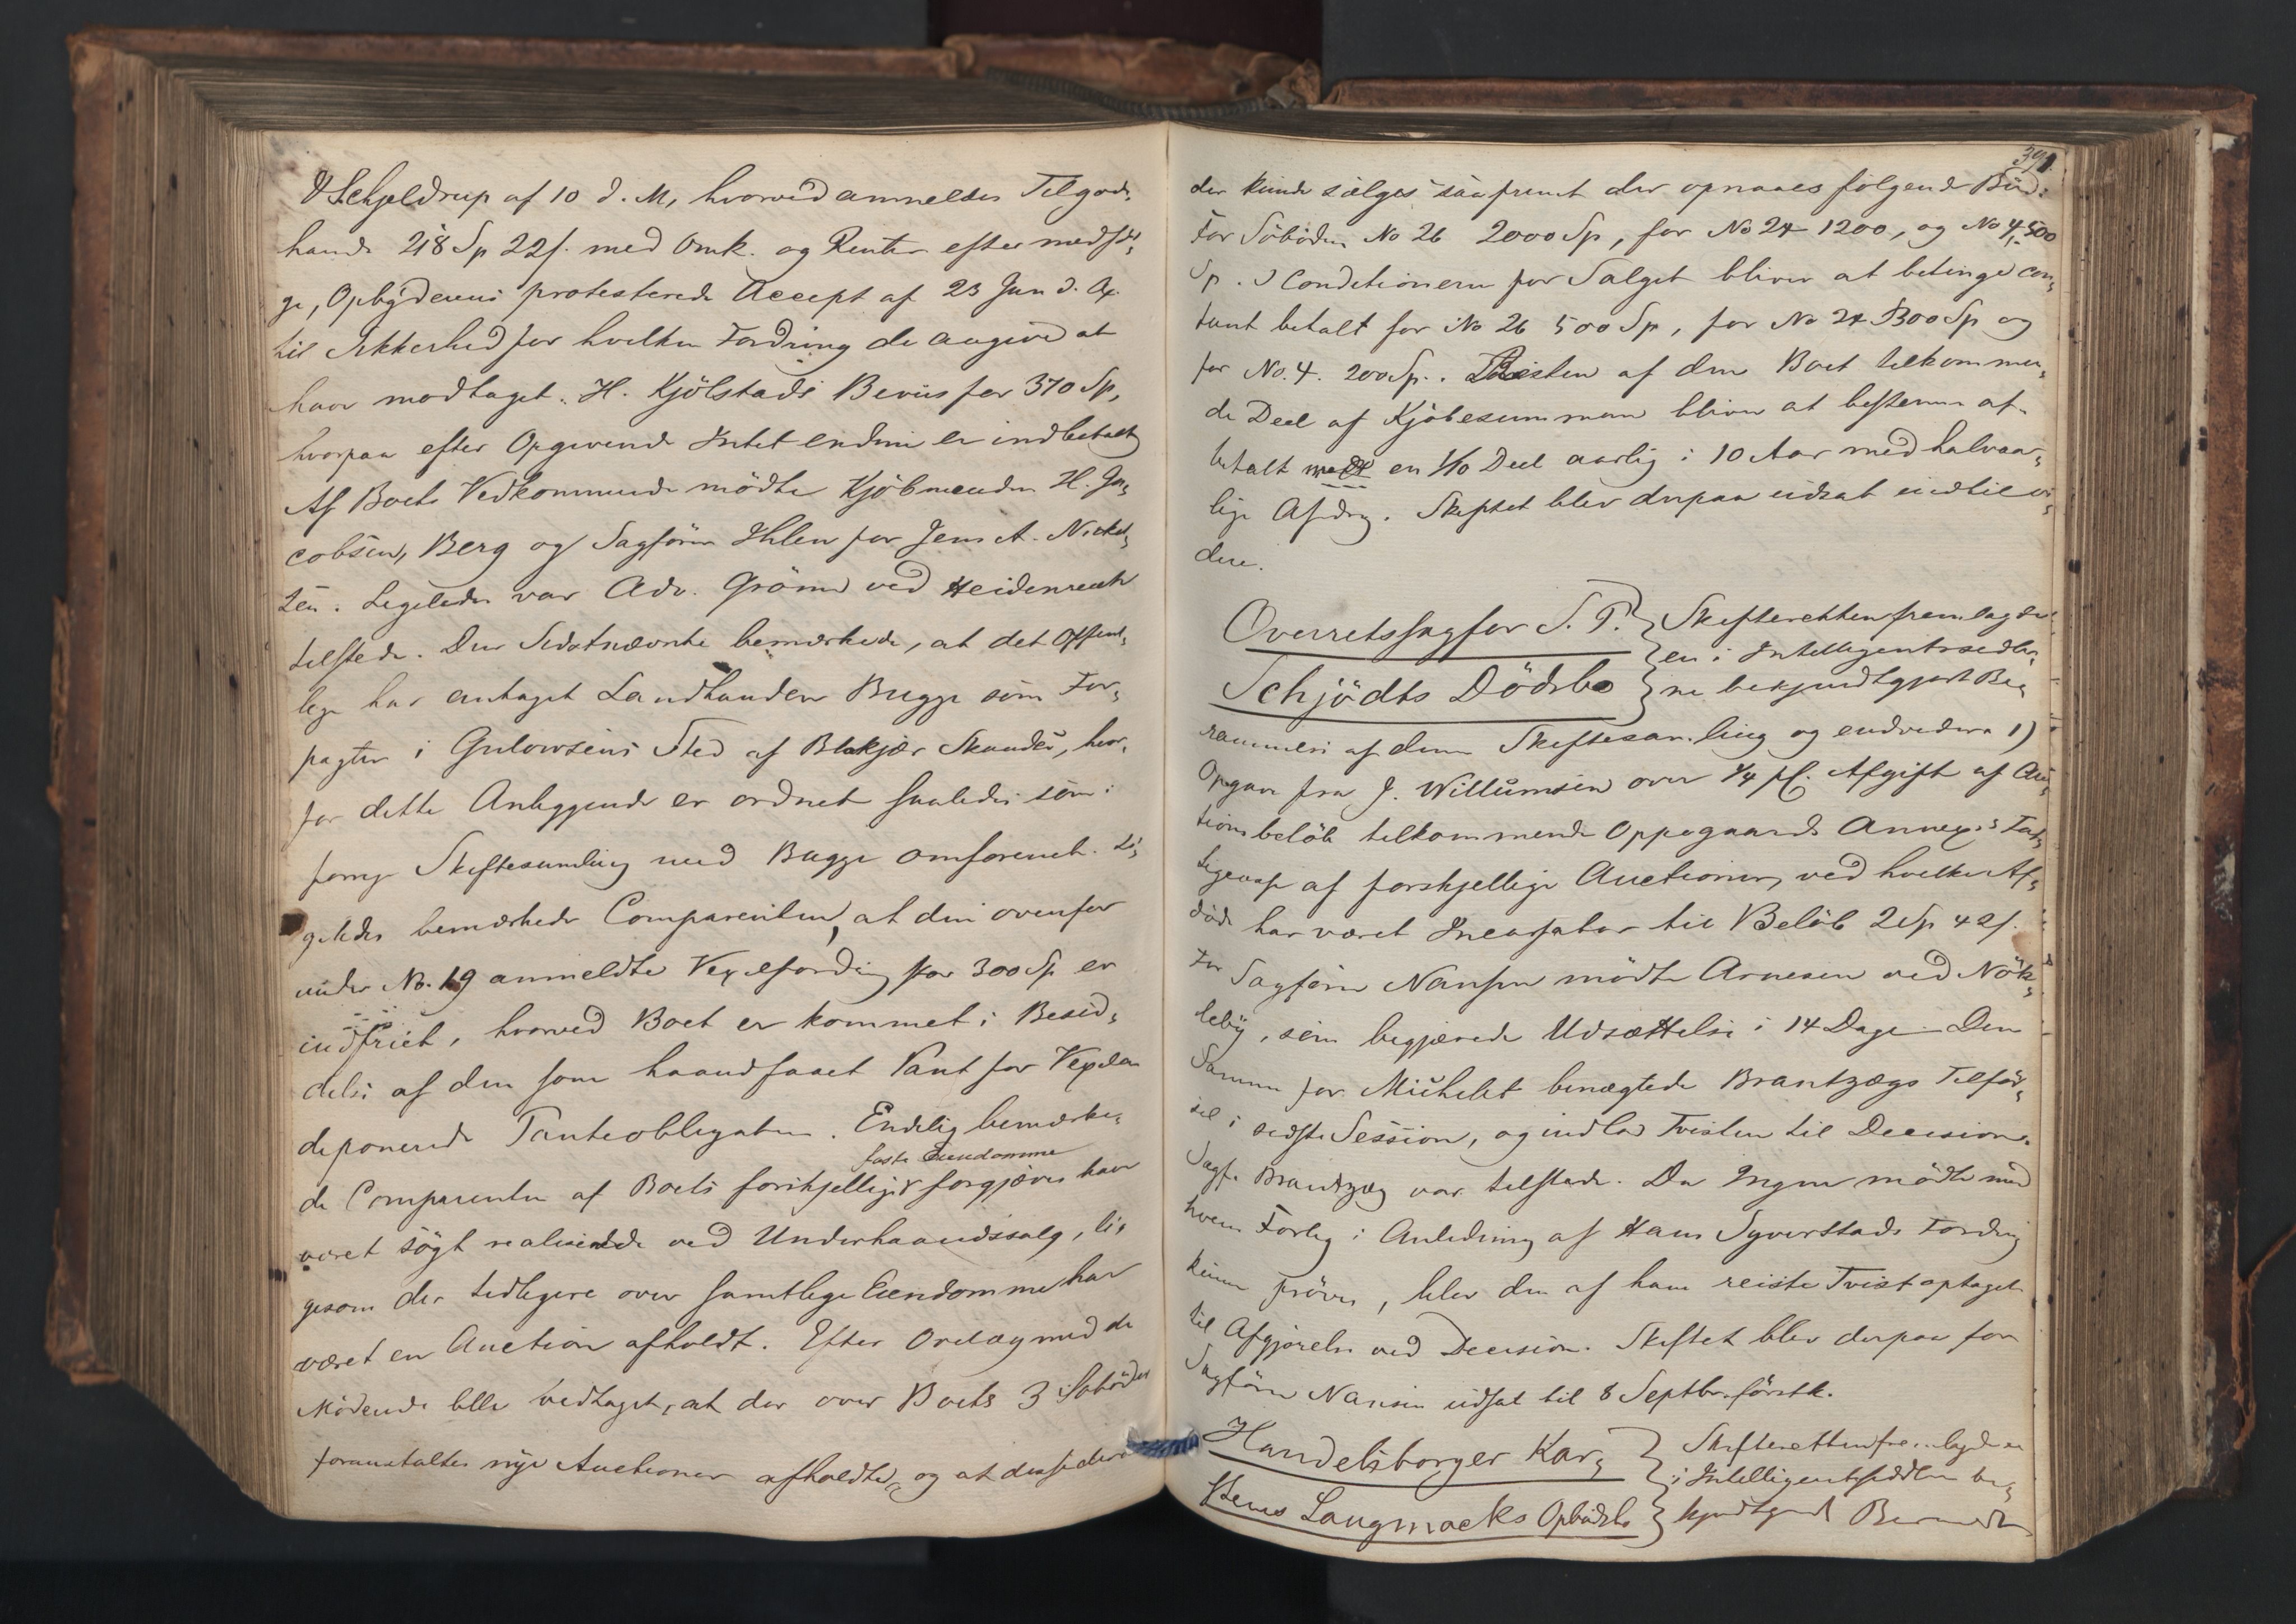 & Schjeldrup af 10 d. M, hvorved anmeldes Tilgode,
hande 218 Sp 22s. med Omk. og Renter efter medføl,
ge, Opbyderens protesterede Accept af 23 Jun d. A.
til Sikkerhed for hvilken Fordring de angive at
have modtaget H. Kjölstads Beviis for 370 Sp,
hvorpaa efter Opgivende Intet endnu er indbetalt
Af Boets Vedkommende mödte Kjöbmændene H. Ja,
cobsen, Berg og Sagförer Ihlen for Jens A. Nickel,
sen. Ligeledes var Adv. Grönn ved Heidenreich
tilstede. Den Sidstnævnte bemærkede, at det Offent,
lige har antaget Landhandler Bugge som For,
pagter i Gulowsens Sted af Blakjær Skandse, hvor,
for dette Anliggende er ordnet saaledes som i
forrige Skiftesamling med Bugge omforenet. Li,
geledes bemærkede Comparenten, at den ovenfor
under No. 19 anmeldte Vexelfordring for 300 Sp er
indfriet, hvorved Boet er kommet i Besid,
delse af den som haandfaaet Pant for Vexelen
deponerede Panteobligation. Endelig bemærke,
faste Eiendomme
de Comparenten af Boets forskjellige forgjæves have
været sögt realiserede ved Underhaandssalg, li,
gesom der tidligere over samtlige Eiendomme har
været en Auction afholdt. Efter Overlæg med de
Mödende blev vedtaget, at der over Boets 3 Söboder
foranstaltes nye Auctioner afholdte, og at disse der
391.
der kunde sælges saafremt der opnaaes følgende Bud:
For Söboden No 26 2000 Sp, for No 24 1200, og No 4, 500
Sp. I Conditionerne for Salget bliver at betinge con,
tant betalt for No 26 500 Sp, for No 24 300 Sp og
for No. 4. 200 Sp. Resten af den Boet tilkommen,
de Deel af Kjöbesummen bliver at bestemme af,
betalt med en 1/10 Deel aarlig i 10 Aar med halvaar,
lige Afdrag. Skiftet blev derpaa udsat indtil vi,
dere.
Overretssagfør S. P.
Schjödts Dödsbo
Skifteretten fremlagde
en i Intelligentssedler,
ne bekjendtgjort Be,
rammelse af denne Skiftesamling og endvidere 1)
Opgave fra J. Willumsen over 1/4 pC. Afgift af Auc,
tionsbelöb tilkommende Oppegaards Annex's Fat,
tigcasse af forskjellige Auctioner, ved hvilke Af,
döde har været Incassator til Belöb 2 Sp 42 s.
For Sagförer Nansen mödte Arnesen ved Nök,
leby, som begjærede Udsættelse i 14 Dage. Den
Samme for Michelet benægtede Brantzægs Tilför,
sel i sidste Session, og indlod Tvisten til Decision.
Sagf. Brantzæg var tilstede. Da Ingen mödte med
hvem Forlig i Anledning af Hans Syverstads Fordring
kunne pröves, blev den af ham reiste Tvist optaget
til Afgjörelse ved Decision. Skiftet blev derpaa for
Sagförer Nansen udsat til 8 Septbr. förstk.
Handelsborger Kar,
stens Langmacks Opbudsbo
Skifteretten fremlagde en
i Intelligentssedlerne be,
kjendtgjort Berammelse